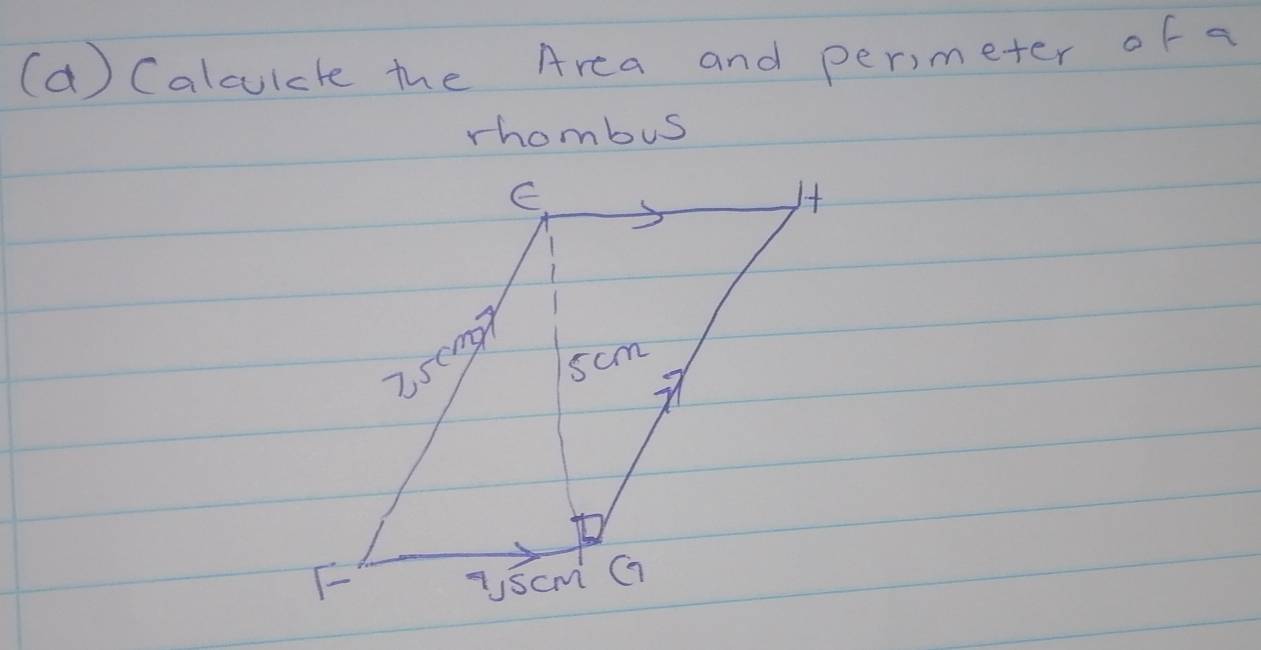 (a) Calculate the Area and perimeter of a
rhombus
E H
7,5cm
5cm
F 7,5cm G